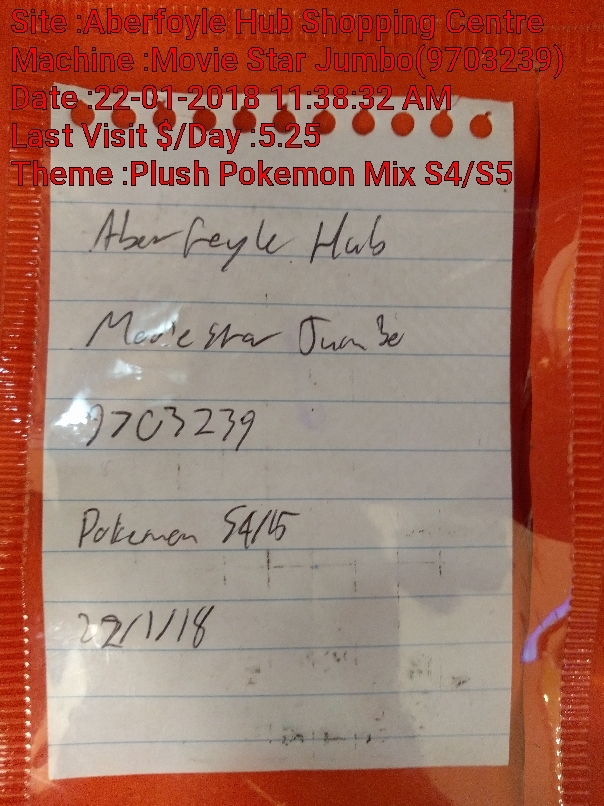 Site :Aberfoyle Hub Shopping Centre
Machine :Movie Star Jumbo(9703239)
Date :22-01-2018 11:38:32 AM
Last Visit $/Day :5.25
Theme :Plush Pokemon Mix S4/S5
Aberfoyle Hub
Movie Star Jumbo
9703239
Pokemon S4/15
22/1/18